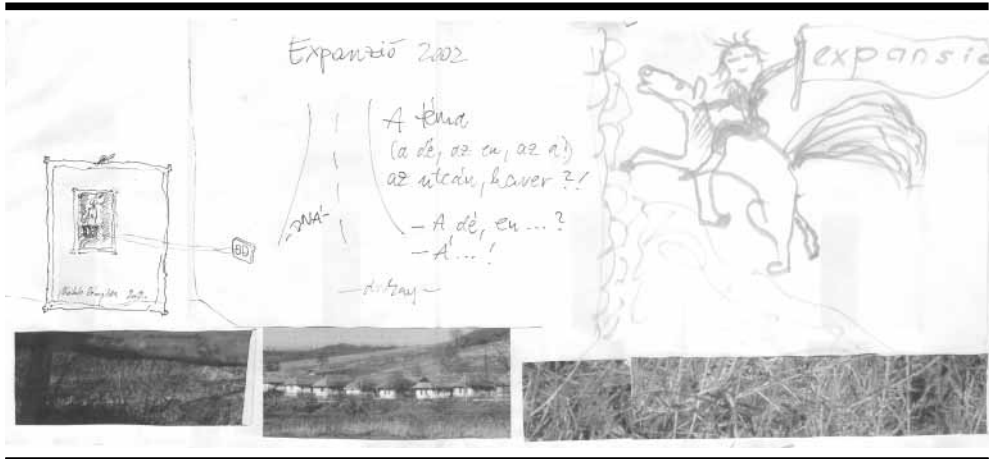 Expanzió 2002
A téma
(a dé, az en, az á!)
az utcán, haver?!
- A dé, en...?
- Á...!
expansio
BD